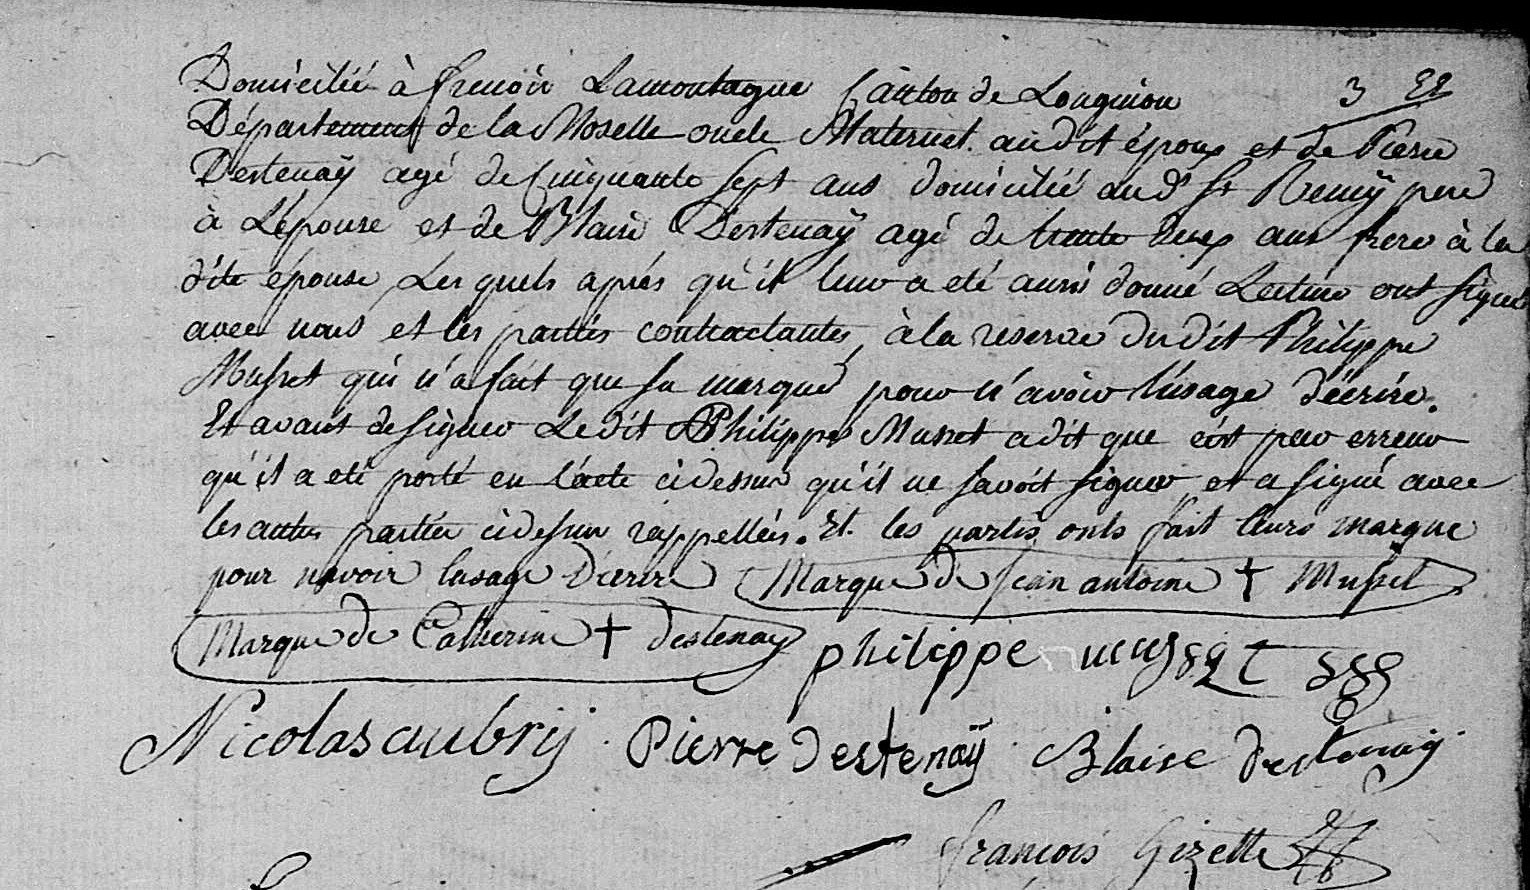 3 E2
Domicilié à frenoir Lamontagne Canton de Longuion
Département de la Moselle oncle Maternel audit époux et de Pierre
Destenaÿ agé de Cinquante sept ans domicilié aud. St Remÿ pere
à Lépouse et de Blaise Destenaÿ agé de trente deux ans frere à la
dite épouse Lesquels aprés qu'il leur a eté aussi donné Lecture ont signé
avec nous et les parties contractantes, à la reserve dudit Philippe
Musset qui n'a fait que sa marque pour n'avoir l'usage d'écrire.
Et avant de signer Ledit Philippe Musset a dit que c'est par erreur
qu'il a eté porté en l'acte cidessus qu'il ne savoit signer et a signé avec
les autres parties cidessus rappellées. Et. les partis onts fait leurs marque
pour navoir lusage D'ecrire Marque de Jean antoine + Musset
Marque de Catherine + destenay philippe musset
Nicolas aubrij Pierre Destenaÿ Blaise destenaij
françois Gizette